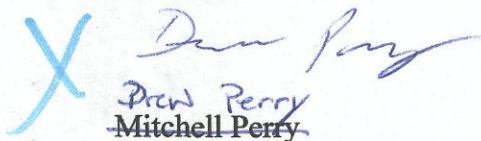 X Drew Perry
Drew Perry
Mitchell Perry